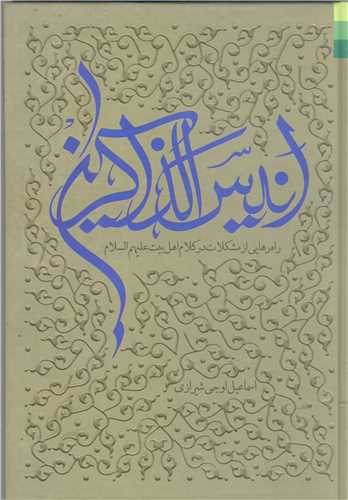 انیس الذاکرین
راه رهایی از مشکلات در کلام اهل بیت علیهم السلام
اسماعیل اوجی شیرازی